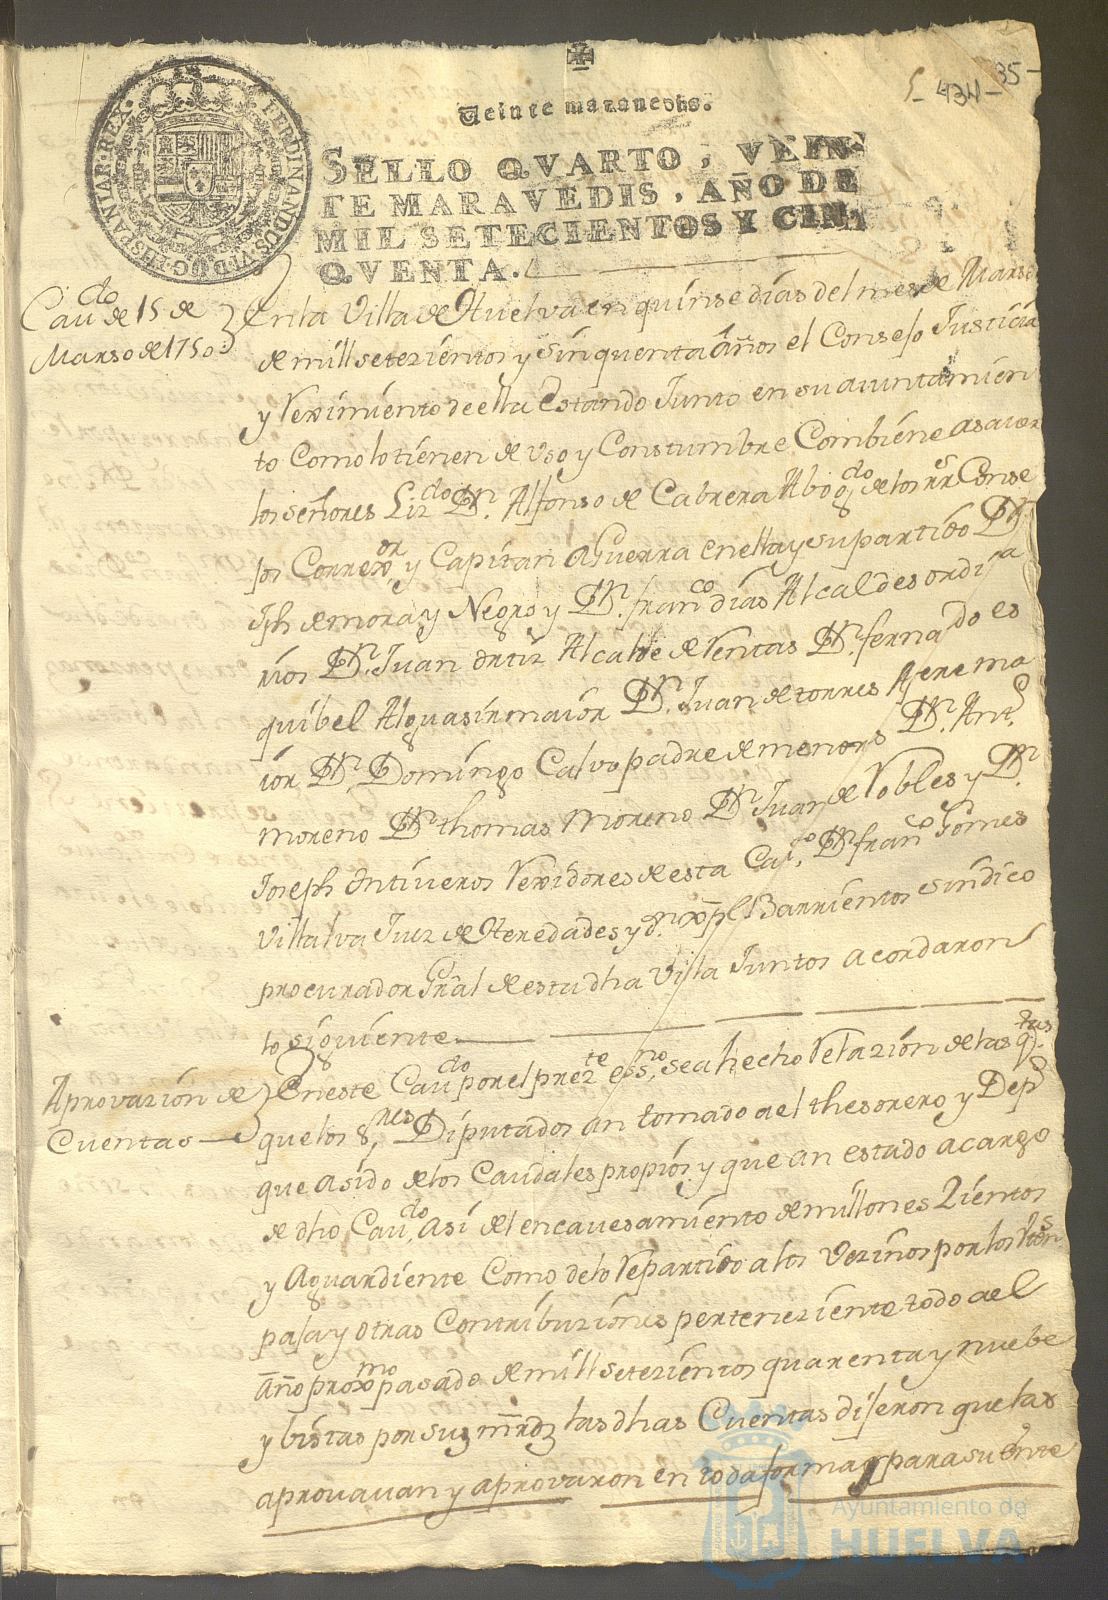 5-434-35-
Veinte marauedis.
FERDINANDUS·VI·D·G·HISPANIAR·REX·
SELLO QVARTO, VEIN-
TE MARAVEDIS, AÑO DE
MIL SETECIENTOS Y CIN-
QVENTA.
Caudo de 15 de
Marso de 1750
En la Villa de Huelva en quinse dias del mes de Marso
de mill setezientos y sinquenta años el Consejo Justicia
y Reximiento de ella Estando Junto en su aiuntamien
to Como lo tienen de uso y Constumbre Combiene a saver
los señores Lizdo Dn. Alfonso de Cabrera Abogdo de los rrs Conse
jos Correxor y Capitan a Guerra en ella y su partido Dn
Jph de mora y Negro y Dn. franco dias Alcaldes ordina
rios Dn. Juan ortiz Alcalde de Rentas Dn. fernando es
quibel Alguasir maior Dn. Juan de torres Aferema
ior Dn. Domingo Calvo padre de menores Dn. Anto
moreno Dn thomas Moreno Dn Juan de Robles y Dn
Joseph Ontiveros Rexidores de esta Dn franco Gomes
Villalva Juez de Heredades y dn xpl Barrientos sindico
procurador Gral de esta dha Villa Juntos acordaron
lo siguiente
Aprovazion de
Cuentas
En este Caudo por el prezte esno, se a hecho Relazion de las qtas
que los sres Diputados an tomado a el thesorero y Depo
que a sido de los Caudales propios y que an estado a cargo
de dho Caudo, asi del encavesamiento de millones Zientos
y Aguardiente Como de lo Repartido a los Vezinos por los
paja y otras Contribuziones perteneziente todo a el
año proxmo pasado de mill setezientos quarenta y nuebe
y bistas por sus mrdz las dhas Cuentas dijeron que las
aprovavan y aprovaron en toda forma y para su
Ayuntamiento de
HUELVA